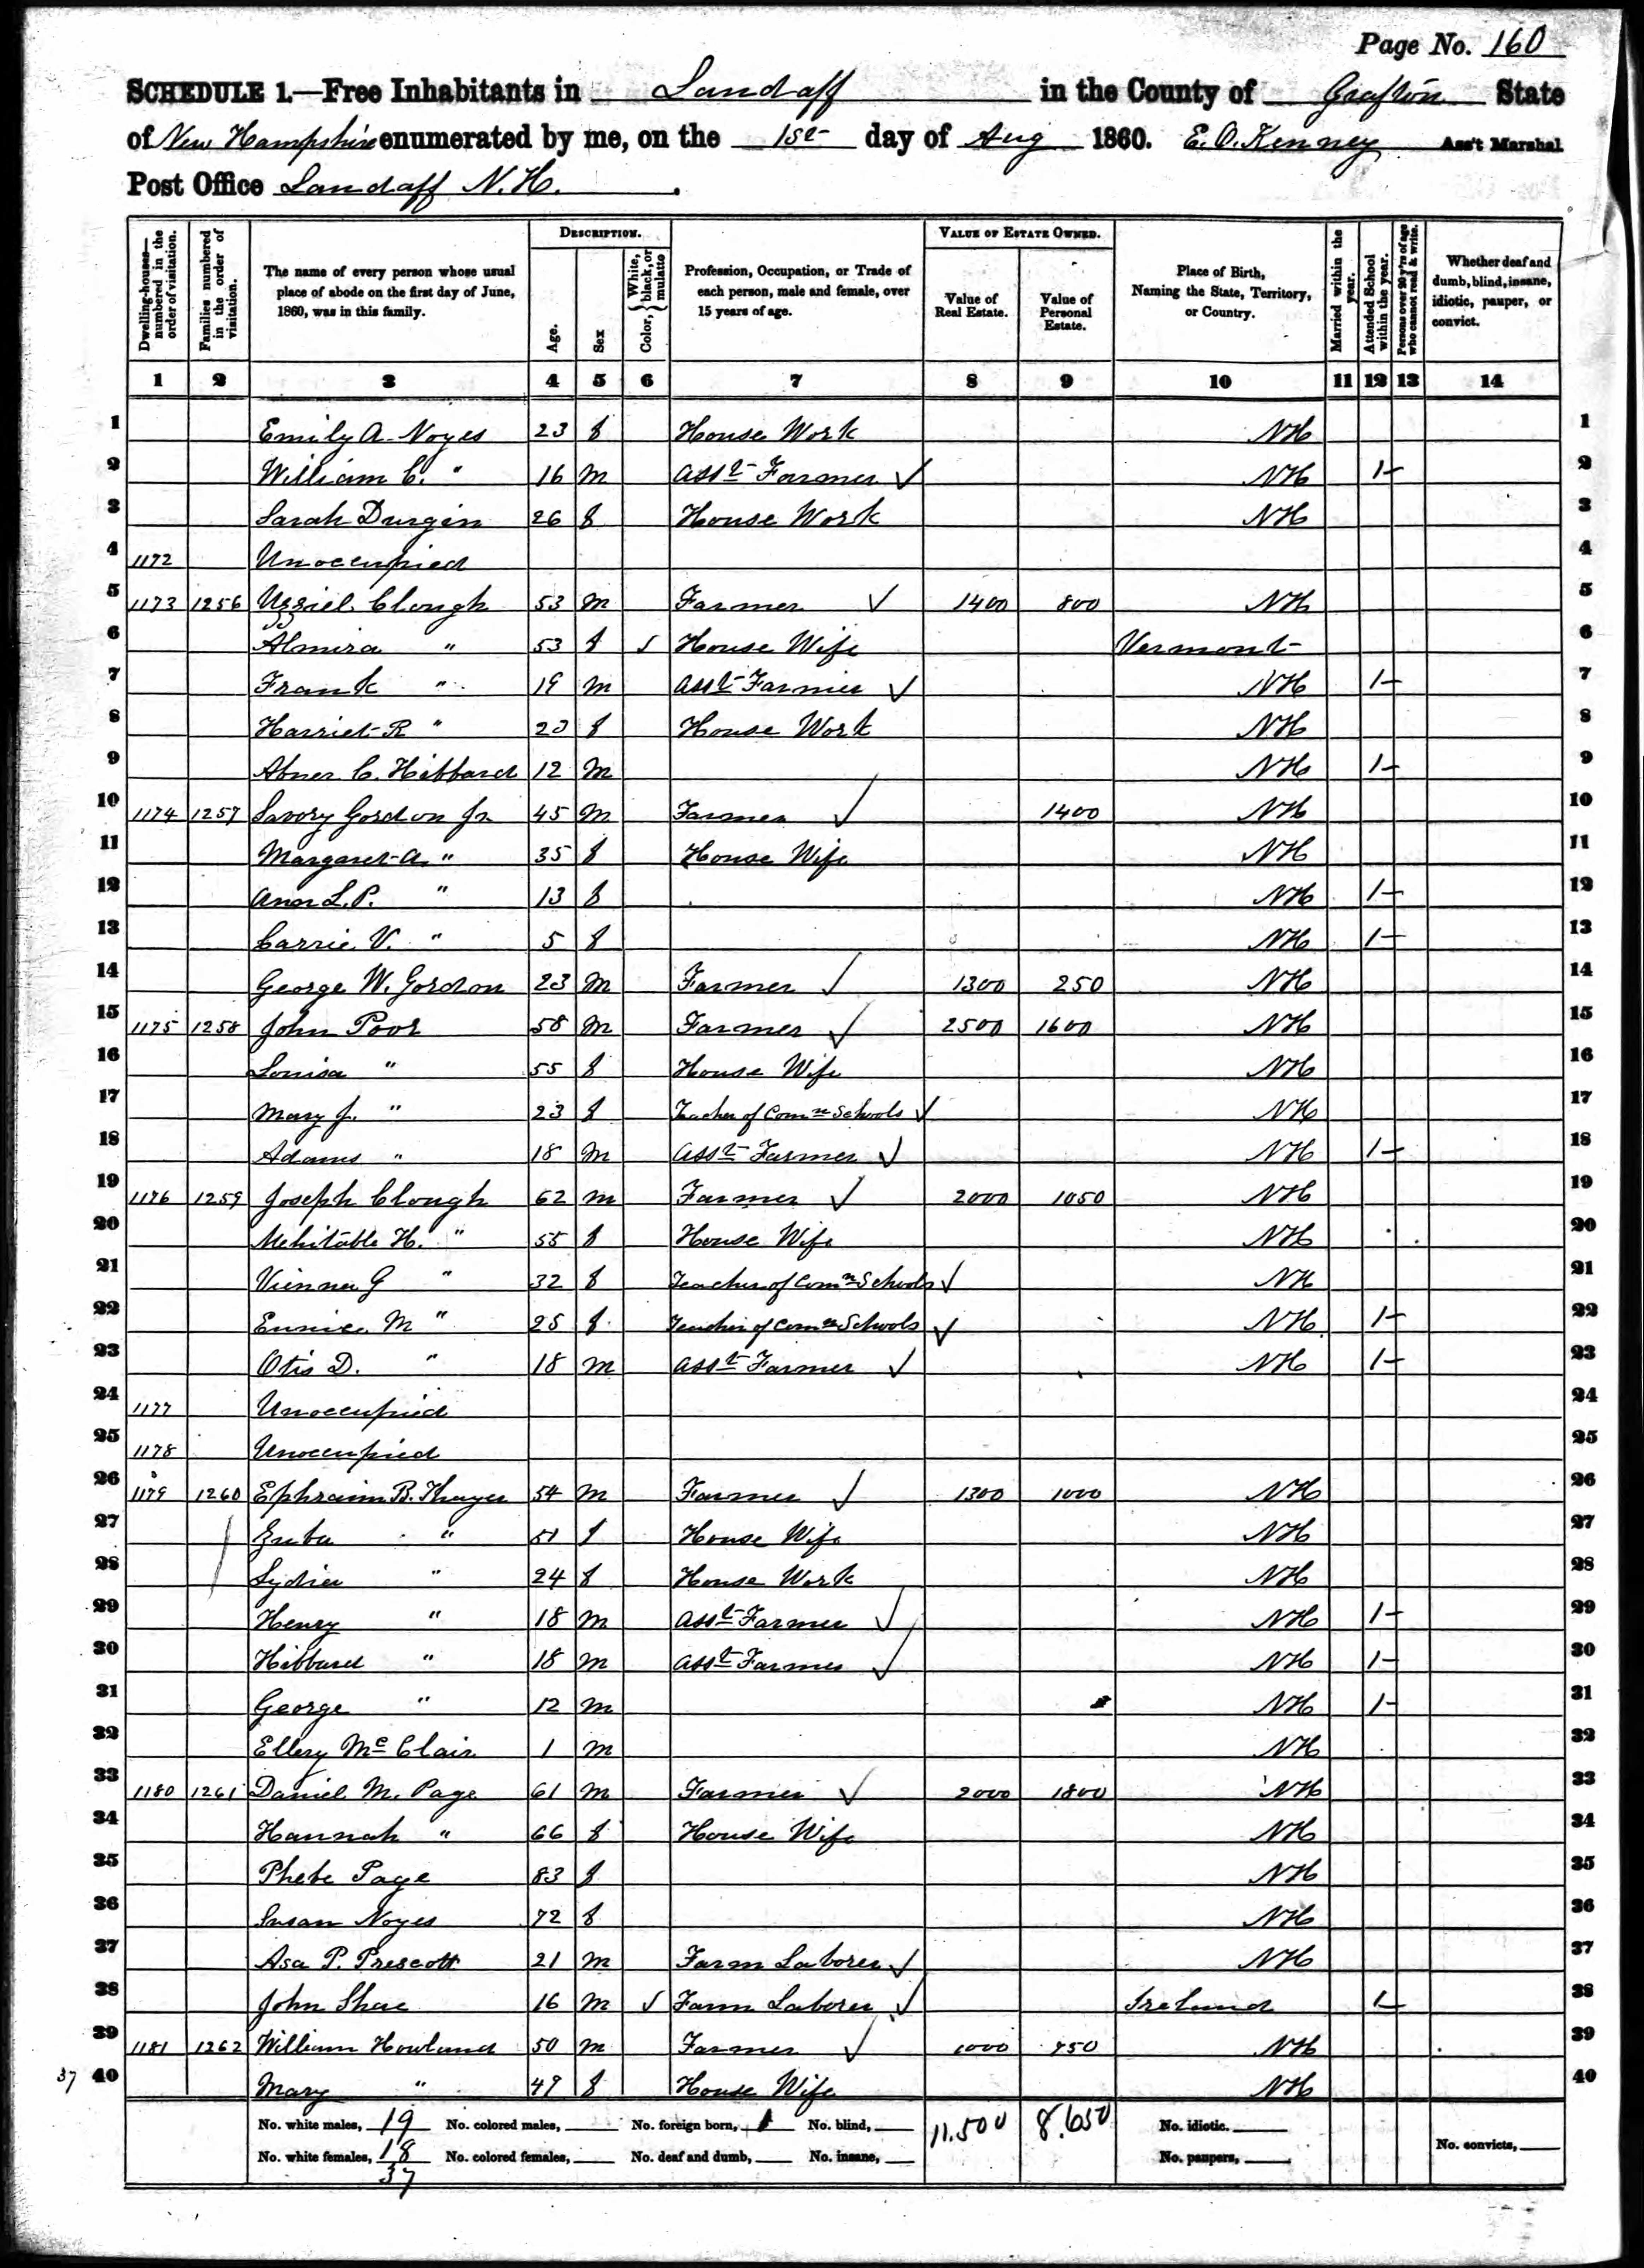 Page No. 160
SCHEDULE 1.—Free Inhabitants in Landaff in the County of Grafton State
of New Hampshire enumerated by me, on the 1st day of Aug 1860. E. O. Kenney Ass't Marshal
Post Office Landaff N.H.
Dwelling-houses—numbered in the order of visitation.
Families numbered in the order of visitation.
The name of every person whose usual place of abode on the first day of June, 1860, was in this family.
DESCRIPTION.
Age.
Sex
Color, { White, black, or mulatto
Profession, Occupation, or Trade of each person, male and female, over 15 years of age.
VALUE OF ESTATE OWNED.
Value of Real Estate.
Value of Personal Estate.
Place of Birth, Naming the State, Territory, or Country.
Married within the year.
Attended School within the year.
Persons over 20 y'rs of age who cannot read & write.
Whether deaf and dumb, blind, insane, idiotic, pauper, or convict.
1 2 3 4 5 6 7 8 9 10 11 12 13 14
1 Emily A. Noyes 23 f House Work NH 1
2 William C. " 16 m Asst Farmer ✓ NH 1 2
3 Sarah Durgin 26 f House Work NH 3
4 1172 Unoccupied 4
5 1173 1256 Uzziel Clough 53 m Farmer ✓ 1400 800 NH 5
6 Almira " 53 f ✓ House Wife Vermont 6
7 Frank " 19 m Asst Farmer ✓ NH 1 7
8 Harriet R " 23 f House Work NH 8
9 Abner C. Hibbard 12 m NH 1 9
10 1174 1257 Savory Gordon Jr 45 m Farmer ✓ 1400 NH 10
11 Margaret A. " 35 f House Wife NH 11
12 Ann L. P. " 13 f NH 1 12
13 Carrie V. " 5 f NH 1 13
14 George W. Gordon 23 m Farmer ✓ 1300 250 NH 14
15 1175 1258 John Poor 58 m Farmer ✓ 2500 1600 NH 15
16 Louisa " 55 f House Wife NH 16
17 Mary J. " 23 f Teacher of Comn Schools ✓ NH 17
18 Adams " 18 m Asst Farmer ✓ NH 1 18
19 1176 1259 Joseph Clough 62 m Farmer ✓ 2000 1050 NH 19
20 Mehitable H. " 55 f House Wife NH 20
21 Vienna G " 32 f Teacher of Comn Schools ✓ NH 21
22 Eunice M " 25 f Teacher of Comn Schools ✓ NH 1 22
23 Otis D. " 18 m Asst Farmer ✓ NH 1 23
24 1177 Unoccupied 24
25 1178 Unoccupied 25
26 1179 1260 Ephraim B. Thayer 54 m Farmer ✓ 1300 1000 NH 26
27 " 51 f House Wife NH 27
28 Lydia " 24 f House Work NH 28
29 Henry " 18 m Asst Farmer ✓ NH 1 29
30 Hibbard " 18 m Asst Farmer ✓ NH 1 30
31 George " 12 m NH 1 31
32 Ellery Mc Clair 1 m NH 32
33 1180 1261 Daniel M. Page 61 m Farmer ✓ 2000 1800 NH 33
34 Hannah " 66 f House Wife NH 34
35 Phebe Page 83 f NH 35
36 Susan Noyes 72 f NH 36
37 Asa P. Prescott 21 m Farm Laborer ✓ NH 37
38 John Shae 16 m ✓ Farm Laborer ✓ Ireland 1 38
39 1181 1262 William Howland 50 m Farmer ✓ 1000 NH 39
37 40 Mary " 49 f House Wife NH 40
No. white males, 19 No. colored males, No. foreign born, 1 No. blind, 11.500 8.650 No. idiotic.
No. white females, 18 No. colored females, No. deaf and dumb, No. insane, No. paupers, No. convicts,
37